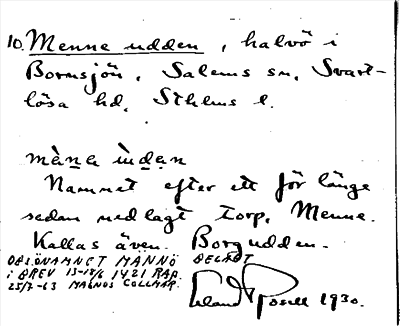 10. Menne udden, halvö i
Bornsjön, Salems sn, Svart-
lösa hd, Sthlms l.
mὲn̥a ùdən
Namnet efter ett för länge
sedan nedlagt torp, Menne.
Kallas även Borgudden.
OBS. ÖNAMNET MANNÖ BELAGT
i BREV 13-15/6 1421 RAP.
25/7-63 MAGNUS COLLMAR.
Erland Rosell 1930.